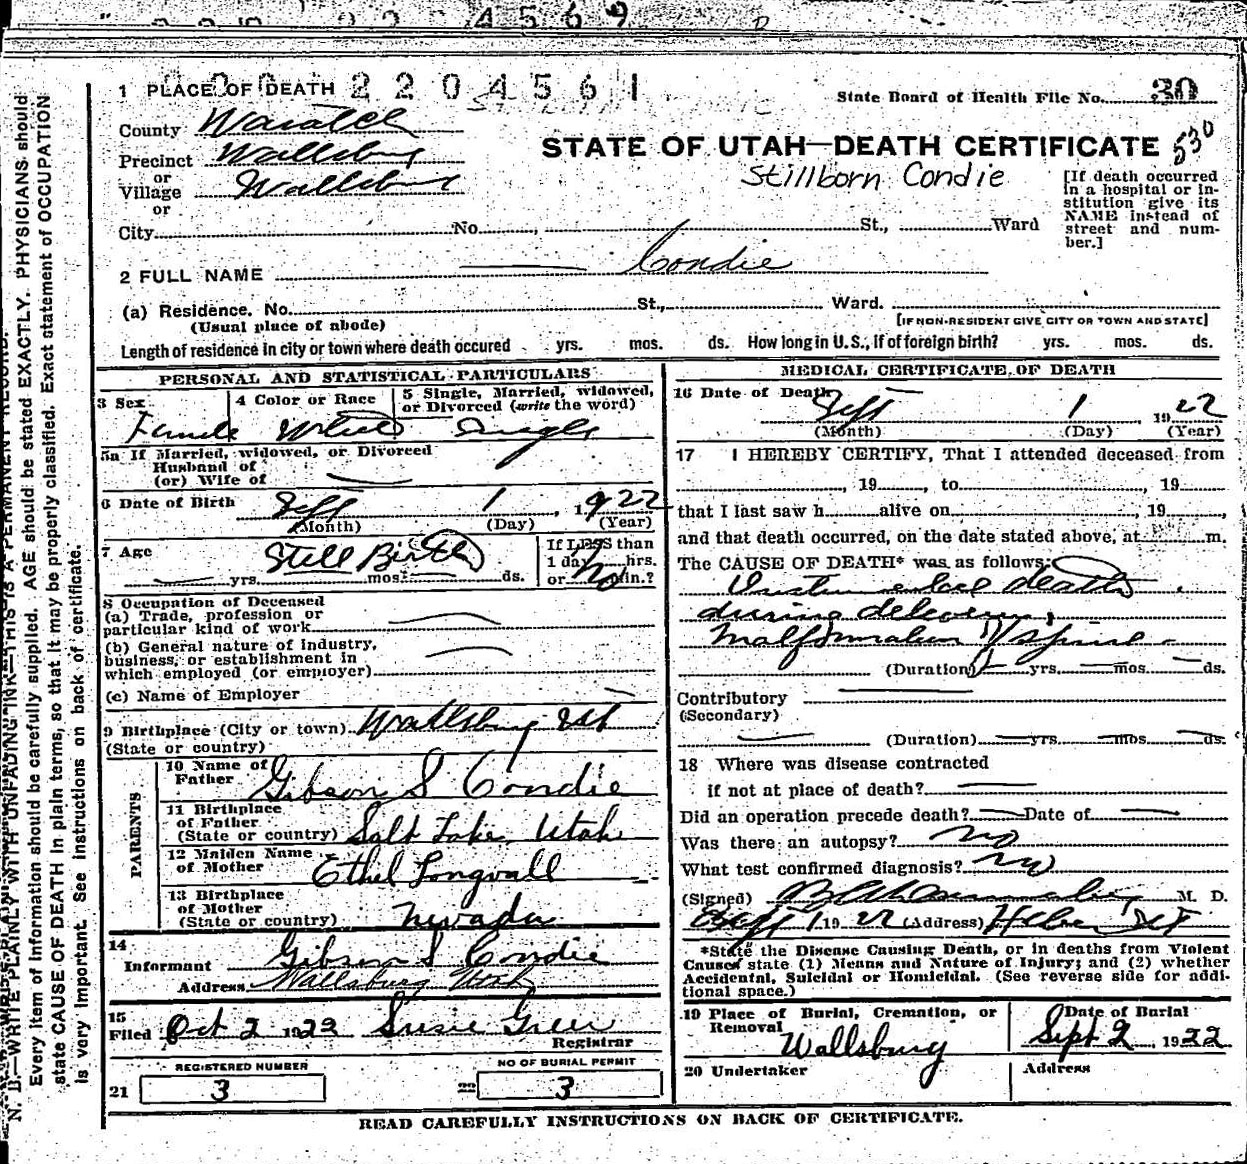 4569
1 PLACE OF DEATH 2204561
State Board of Health File No. 30
County Wasatch
STATE OF UTAH—DEATH CERTIFICATE 530
Precinct Wallsburg
or
Village Wallsburg
or
Stillborn Condie
[If death occurred in a hospital or institution give its NAME instead of street and number.]
City No. , St., Ward
2 FULL NAME — Condie
(a) Residence. No. St., Ward.
(Usual place of abode) [IF NON-RESIDENT GIVE CITY OR TOWN AND STATE]
Length of residence in city or town where death occured yrs. mos. ds. How long in U. S., if of foreign birth? yrs. mos. ds.
PERSONAL AND STATISTICAL PARTICULARS
3 Sex 4 Color or Race 5 Single, Married, widowed, or Divorced (write the word)
Female White Single
5a If Married, widowed, or Divorced
Husband of
(or) Wife of —
6 Date of Birth Sept 1, 1922
(Month) (Day) (Year)
7 Age Still Birth If LESS than
1 day hrs.
— yrs. mos. ds. or min.?
8 Occupation of Deceased
(a) Trade, profession or
particular kind of work —
(b) General nature of industry,
business, or establishment in
which employed (or employer) —
(c) Name of Employer —
9 Birthplace (City or town) Wallsburg
(State or country)
PARENTS
10 Name of Father Gibson S Condie
11 Birthplace of Father
(State or country) Salt Lake, Utah
12 Maiden Name of Mother Ethel Longvall
13 Birthplace of Mother
(State or country) Nevada
14
Informant Gibson S Condie
Address Wallsburg Utah
15
Filed Oct 2 1922 Susie Greer
Registrar
REGISTERED NUMBER NO OF BURIAL PERMIT
21 3 22 3
MEDICAL CERTIFICATE OF DEATH
16 Date of Death Sept 1 1922
(Month) (Day) (Year)
17 I HEREBY CERTIFY, That I attended deceased from
, 19 , to , 19
that I last saw h alive on , 19 ,
and that death occurred, on the date stated above, at m.
The CAUSE OF DEATH* was as follows:
death
during delivery,
Malformation of spine —
(Duration) — yrs. — mos. — ds.
Contributory —
(Secondary)
— (Duration) — yrs. — mos. — ds.
18 Where was disease contracted
if not at place of death? —
Did an operation precede death? — Date of —
Was there an autopsy? no
What test confirmed diagnosis? no
(Signed) M. D.
Sept 1 1922 (Address) Heber
*State the Disease Causing Death, or in deaths from Violent
Causes state (1) Means and Nature of Injury; and (2) whether
Accidental, Suicidal or Homicidal. (See reverse side for additional space.)
19 Place of Burial, Cremation, or Removal Date of Burial
Wallsburg Sept 2, 1922
20 Undertaker Address
READ CAREFULLY INSTRUCTIONS ON BACK OF CERTIFICATE.
N. B.—WRITE PLAINLY WITH UNFADING INK—THIS IS A PERMANENT RECORD.
Every item of information should be carefully supplied. AGE should be stated EXACTLY. PHYSICIANS should
state CAUSE OF DEATH in plain terms, so that it may be properly classified. Exact statement of OCCUPATION
is very important. See instructions on back of certificate.